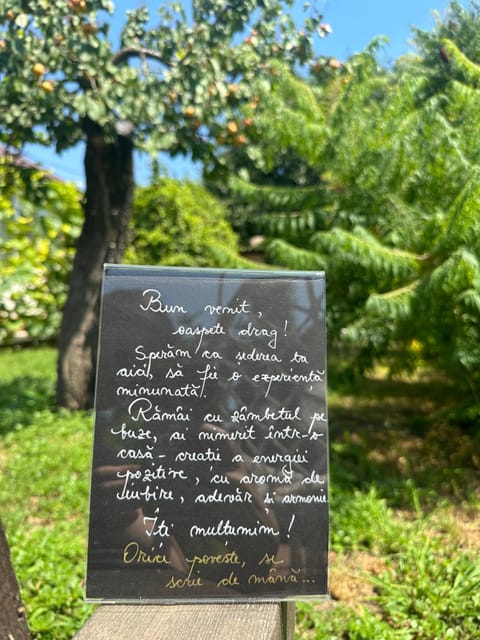 Bun venit,
oaspete drag!
Sperăm ca șederea ta
aici, să fie o experiență
minunată!
Rămâi cu zâmbetul pe
buze, ai nimerit într-o
casă - creatie a energiei
pozitive, cu aromă de
iubire, adevăr și armonie
Îți mulțumim!
Orice poveste, se
scrie de mână...